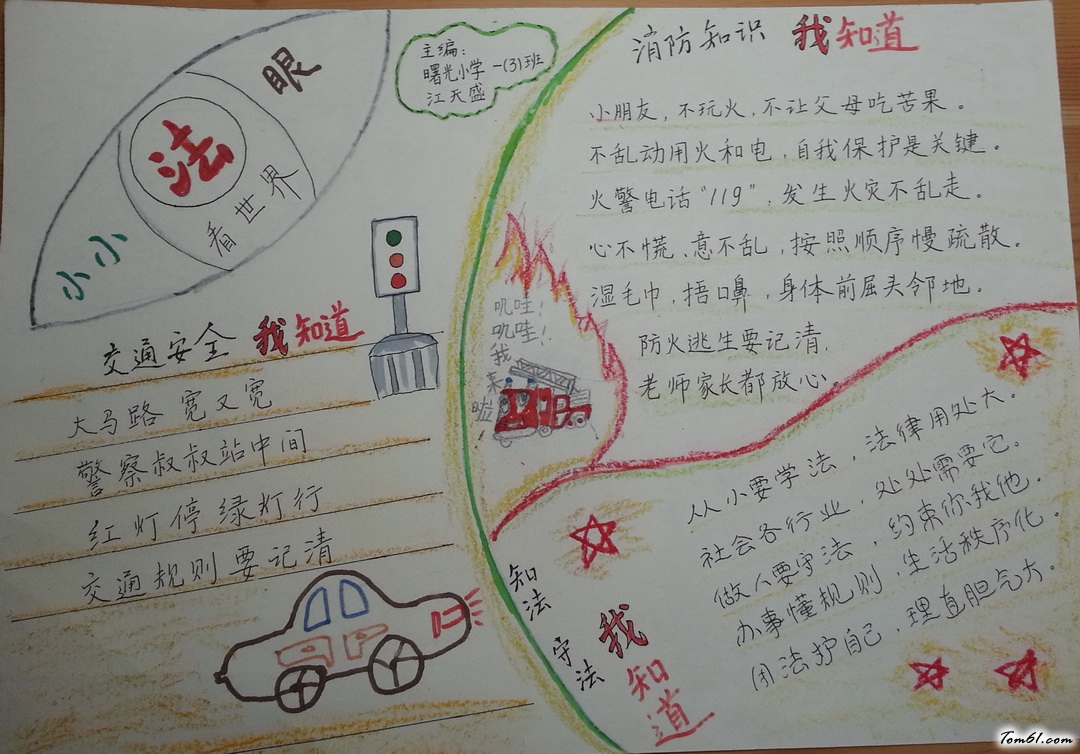 小小
法
眼
看世界
主编：
曙光小学一(3)班
江天盛
交通安全 我知道
大马路 宽又宽
警察叔叔站中间
红灯停 绿灯行
交通规则要记清
消防知识 我知道
小朋友，不玩火，不让父母吃苦果。
不乱动用火和电，自我保护是关键。
火警电话“119”，发生火灾不乱走。
心不慌、意不乱，按照顺序慢疏散。
湿毛巾，捂口鼻，身体前屈头邻地。
防火逃生要记清，
老师家长都放心。
叽哇！
叽哇！
我
来
啦
知法
守法
我知道
从小要学法，法律用处大。
社会各行业，处处需要它。
做人要守法，约束你我他。
办事懂规则，生活秩序化。
用法护自己，理直胆气大。
Tom61.com